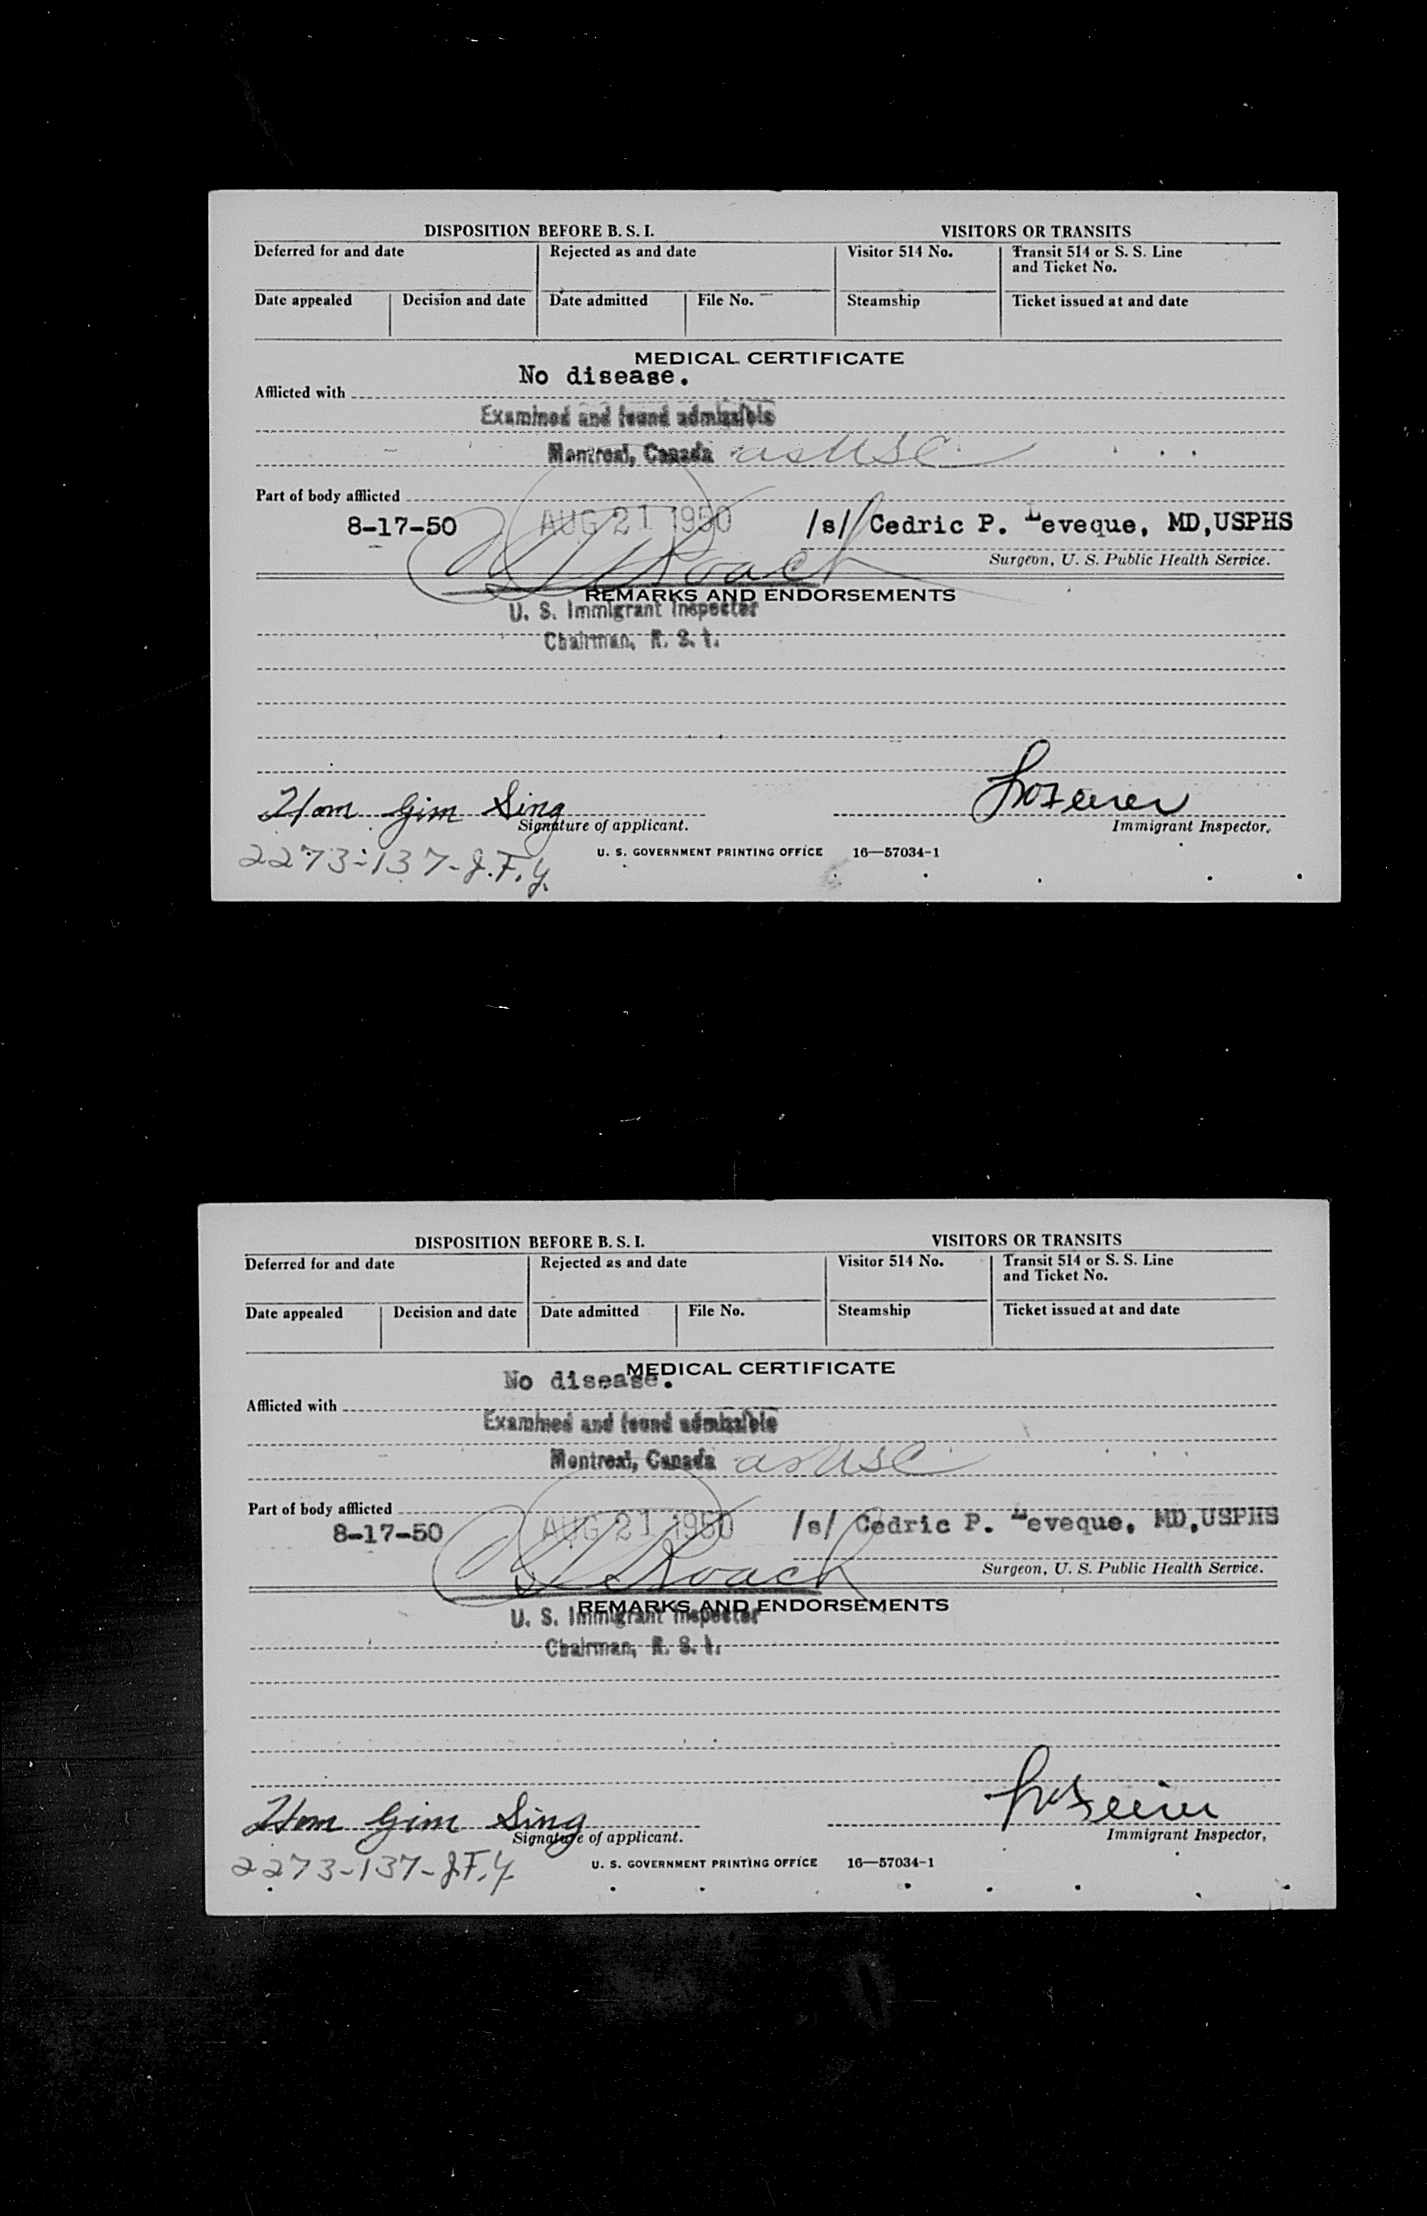 DISPOSITION BEFORE B. S. I.
VISITORS OR TRANSITS
Deferred for and date
Rejected as and date
Visitor 514 No.
Transit 514 or S. S. Line
and Ticket No.
Date appealed
Decision and date
Date admitted
File No.
Steamship
Ticket issued at and date
MEDICAL CERTIFICATE
No disease.
Afflicted with
Examined and found admissible
Montreal, Canada as USC
Part of body afflicted
8-17-50
AUG 21 1950
/s/ Cedric P. Leveque, MD,USPHS
Roach
Surgeon, U. S. Public Health Service.
REMARKS AND ENDORSEMENTS
U. S. Immigrant Inspector
Chairman, B. S. I.
Hom Gim Sing
Signature of applicant.
Immigrant Inspector,
2273-137-J.F.Y.
U. S. GOVERNMENT PRINTING OFFICE 16—57034-1
DISPOSITION BEFORE B. S. I.
VISITORS OR TRANSITS
Deferred for and date
Rejected as and date
Visitor 514 No.
Transit 514 or S. S. Line
and Ticket No.
Date appealed
Decision and date
Date admitted
File No.
Steamship
Ticket issued at and date
MEDICAL CERTIFICATE
No disease.
Afflicted with
Examined and found admissible
Montreal, Canada as USC
Part of body afflicted
8-17-50
AUG 21 1950
/s/ Cedric P. Leveque, MD,USPHS
Roach
Surgeon, U. S. Public Health Service.
REMARKS AND ENDORSEMENTS
U. S. Immigrant Inspector
Chairman, B. S. I.
Hom Gim Sing
Signature of applicant.
Immigrant Inspector,
2273-137-J.F.Y.
U. S. GOVERNMENT PRINTING OFFICE 16—57034-1